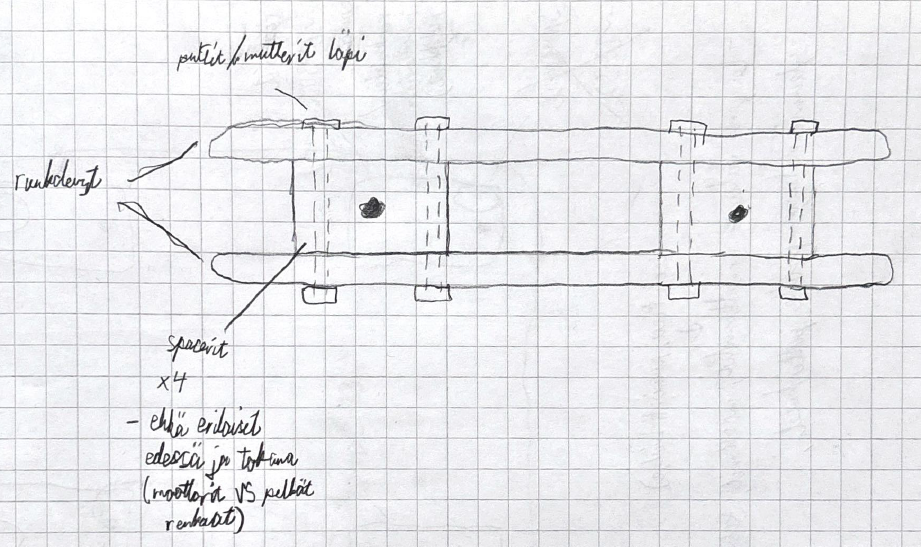 pultit/mutterit läpi
runkolevyt
spacerit
x4
- ehkä erilaiset
edessä ja takana
(moottorit VS pelkät
renkaat)